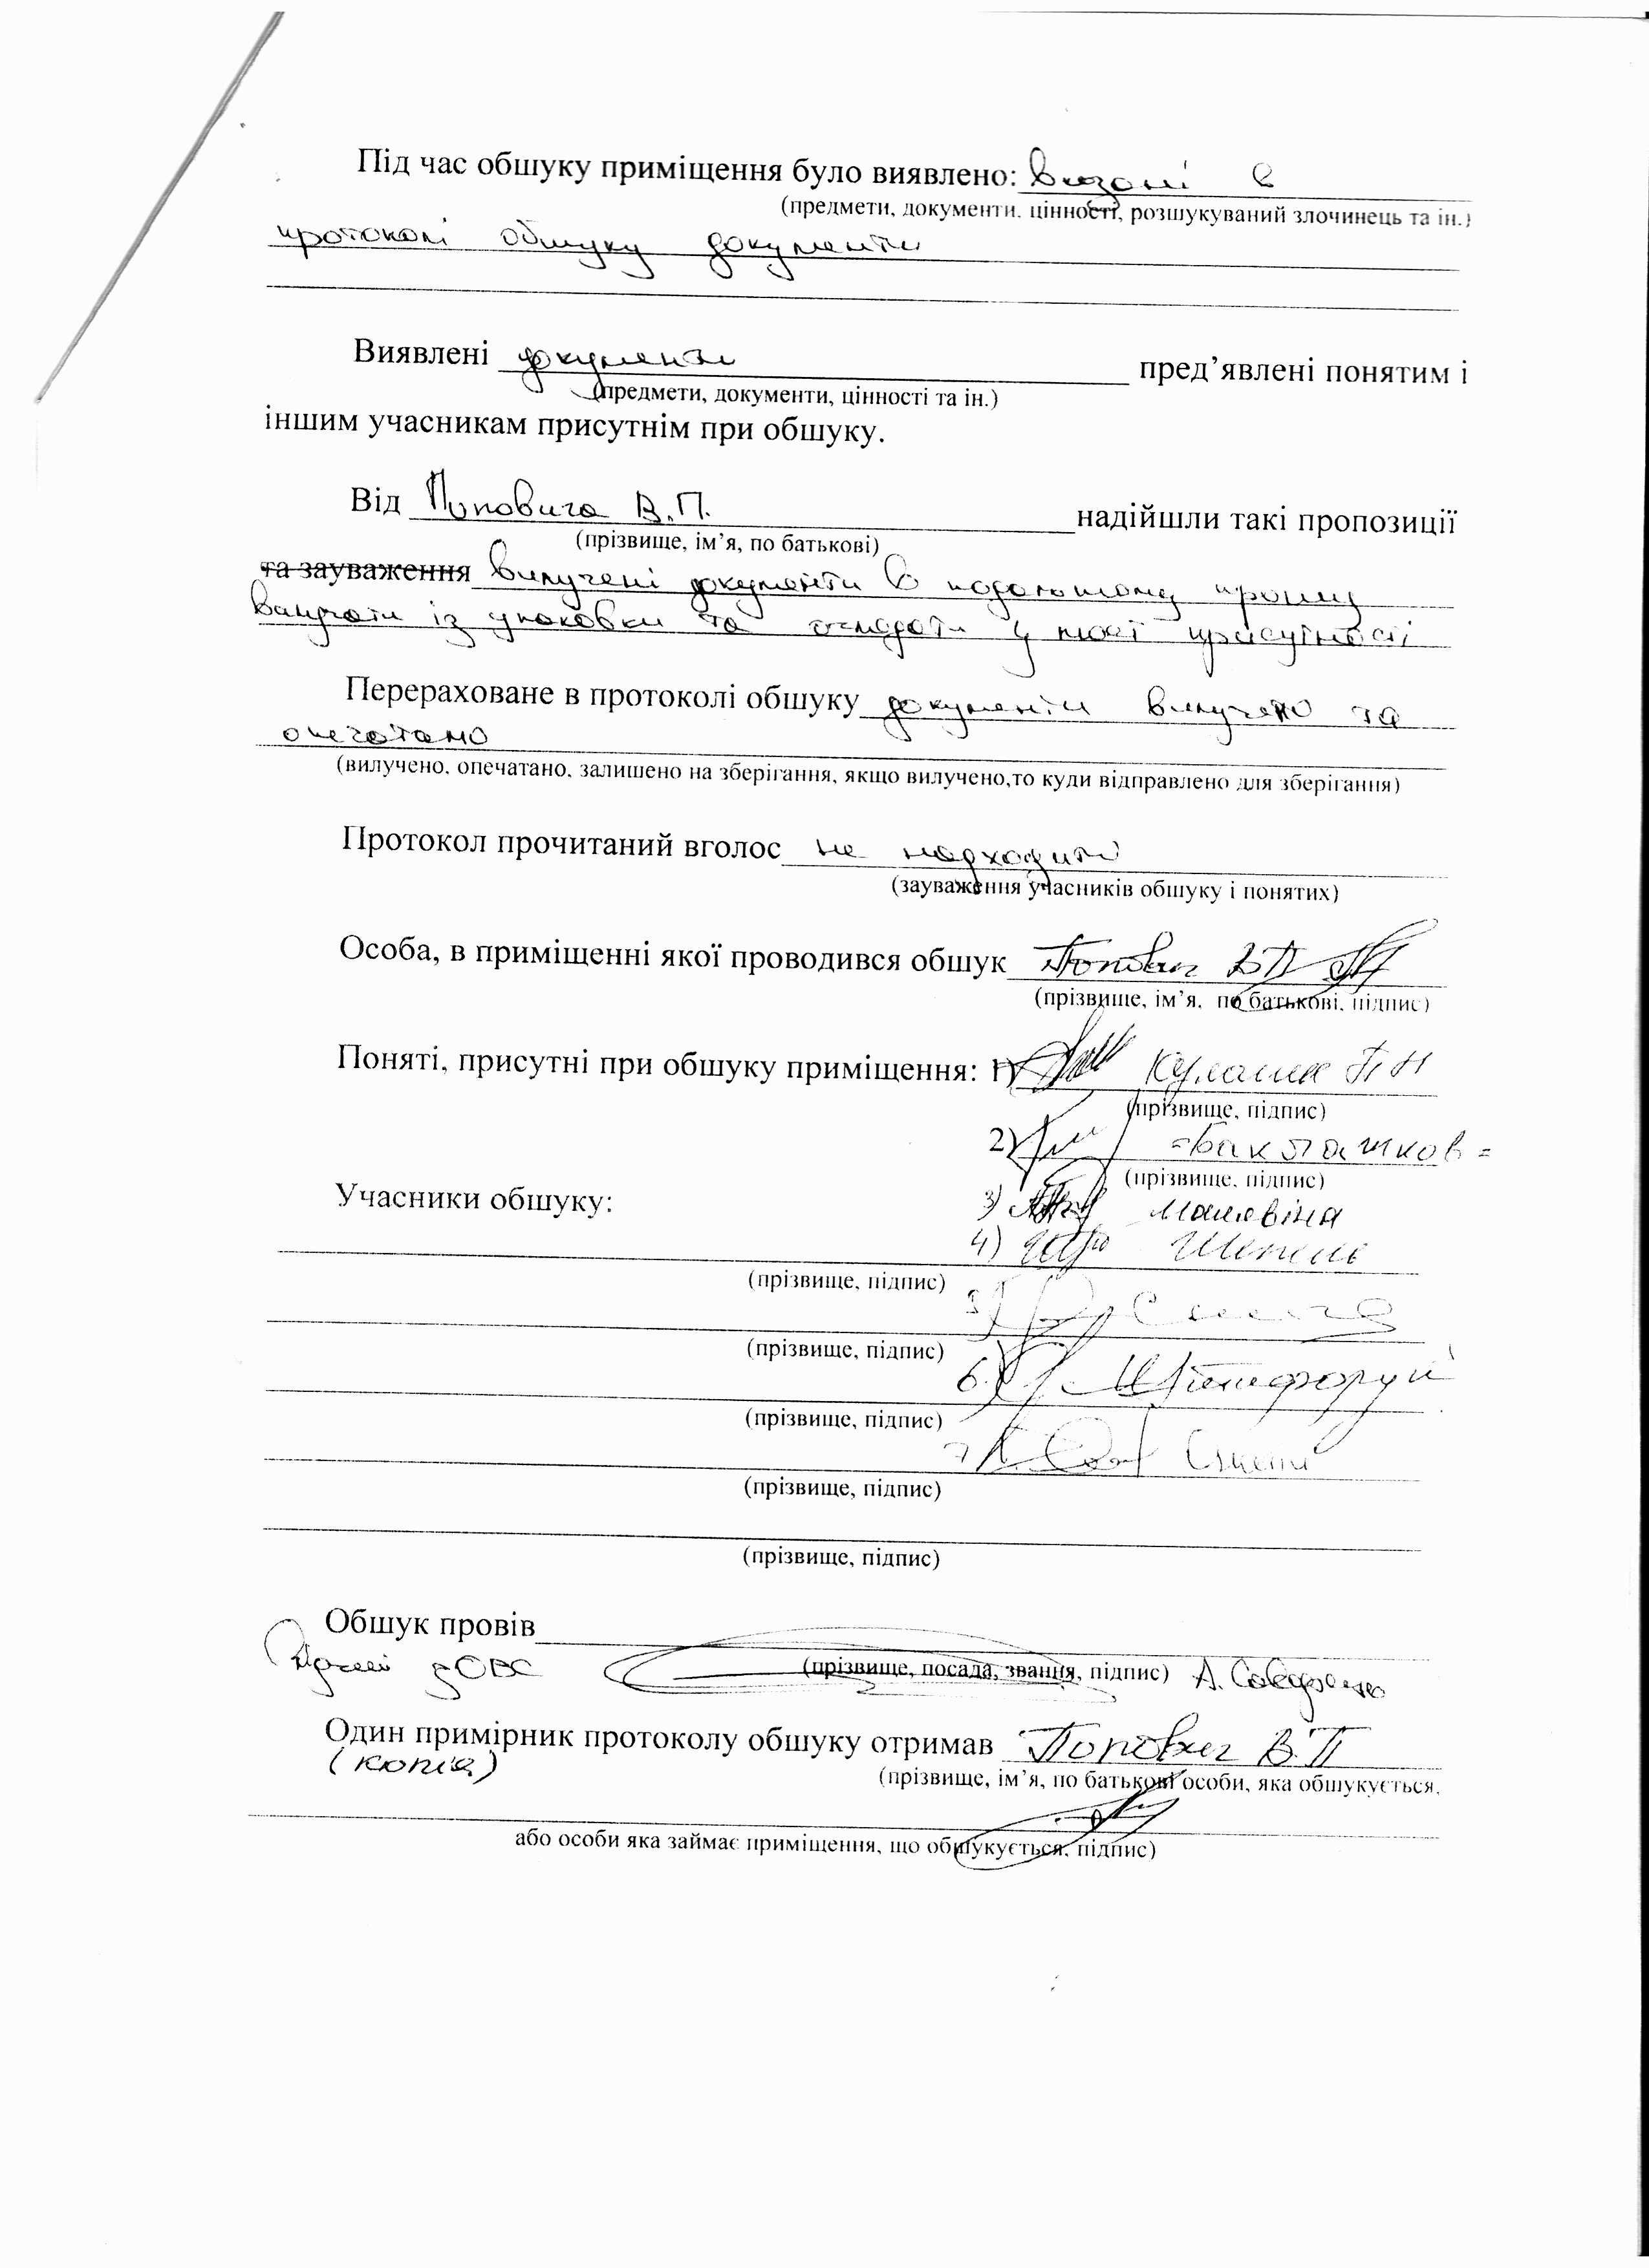 Під час обшуку приміщення було виявлено: вказані в
(предмети, документи, цінності, розшукуваний злочинець та ін.)
протоколі обшуку документи
Виявлені документи пред’явлені понятим і
(предмети, документи, цінності та ін.)
іншим учасникам присутнім при обшуку.
Від Поповича В.П. надійшли такі пропозиції
(прізвище, ім’я, по батькові)
та зауваження вилучені документи в подальшому прошу
із упаковки та оглядати у моєї присутності
Перераховане в протоколі обшуку документи вилучено та
опечатано
(вилучено, опечатано, залишено на зберігання, якщо вилучено,то куди відправлено для зберігання)
Протокол прочитаний вголос не надходило
(зауваження учасників обшуку і понятих)
Особа, в приміщенні якої проводився обшук Попович В П
(прізвище, ім’я, по батькові, підпис)
Поняті, присутні при обшуку приміщення: 1)
(прізвище, підпис)
2)
(прізвище, підпис)
Учасники обшуку: 3)
4)
(прізвище, підпис)
(прізвище, підпис)
6.
(прізвище, підпис)
7
(прізвище, підпис)
(прізвище, підпис)
Обшук провів
ОВС (прізвище, посада, звання, підпис) А.
Один примірник протоколу обшуку отримав Попович В.П
(копія) (прізвище, ім’я, по батькові особи, яка обшукується,
або особи яка займає приміщення, що обшукується, підпис)